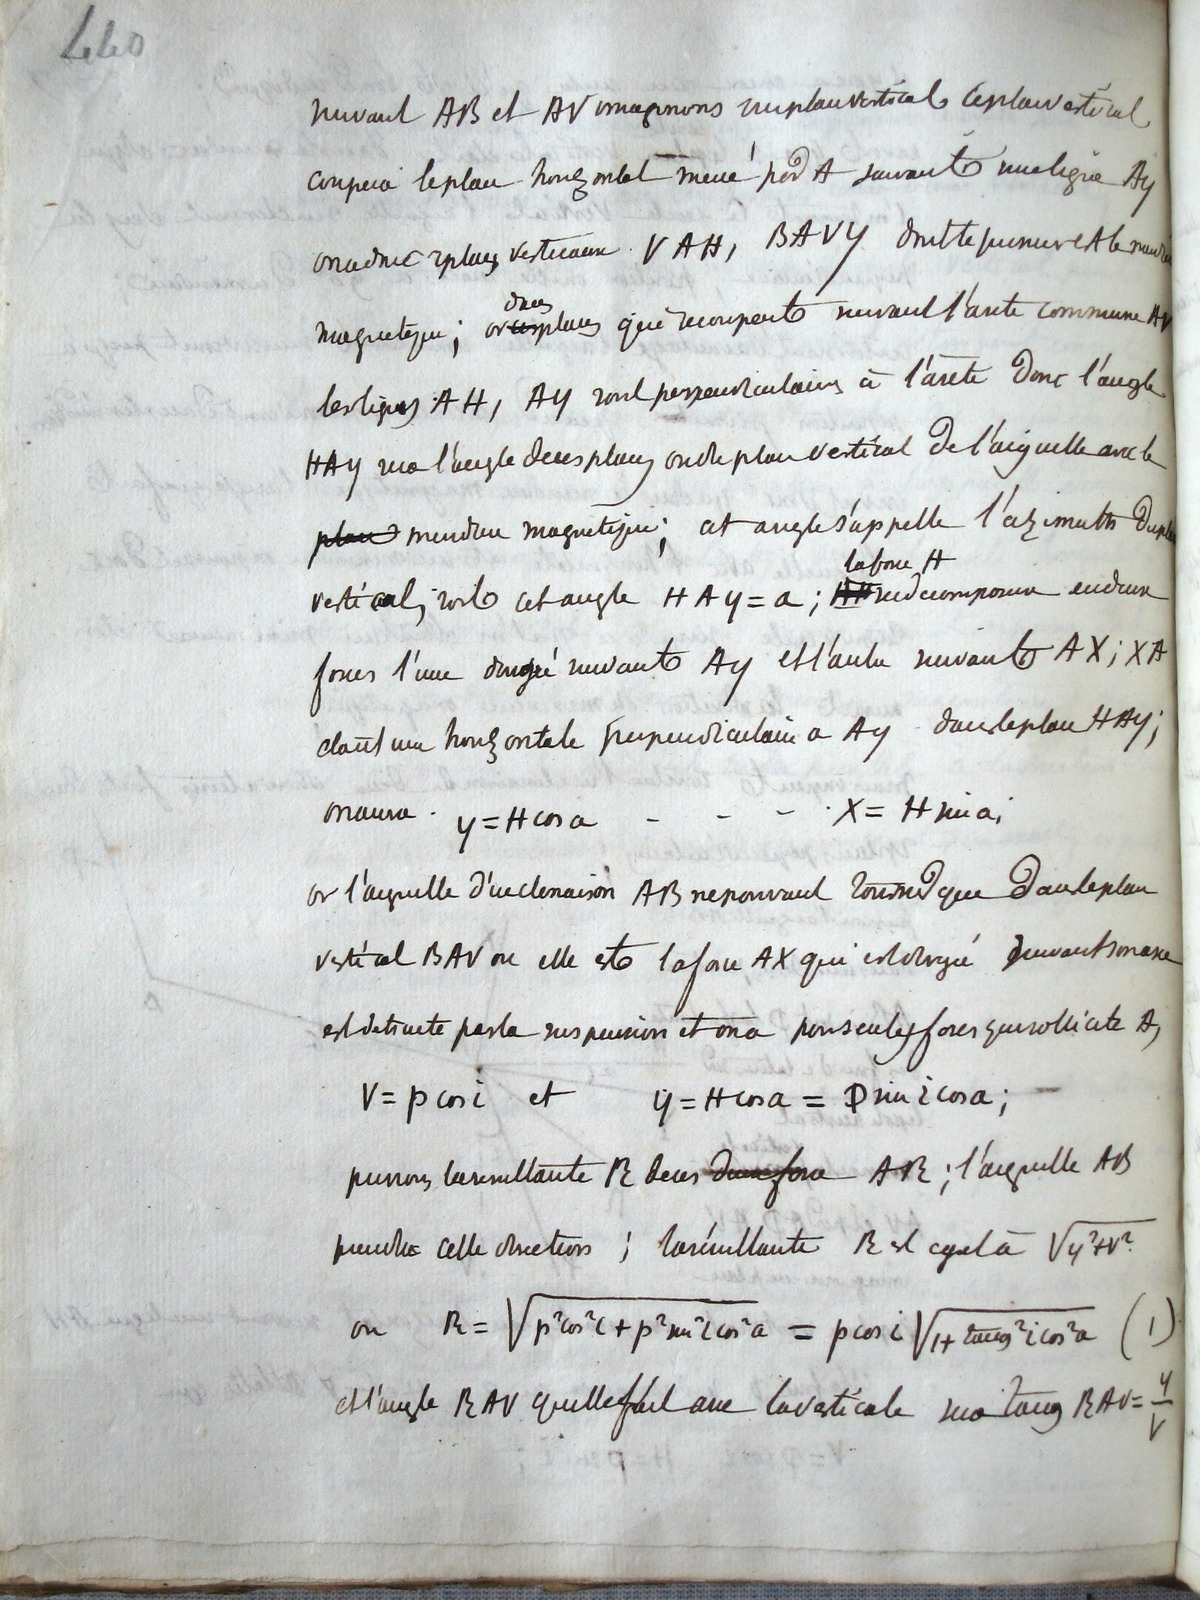 440
suivant AB et AV imaginons un plan vertical ce plan vertical
coupera le plan horizontal mené par A suivant une ligne Ay
on a donc 2 plans verticaux VAH, BAVY dont le premier est le meridien
magnetique; or ces plans deux que recoupent suivant l'arete commune AV
les lignes AH, Ay sont perpendiculaires à l'arète donc l'angle
HAy sera l'angle de ces plans ou du plan vertical de l'aiguille avec le
plan meridien magnetique; cet angle s'appelle l'azimuth du plan
vertical; soit cet angle HAy = a; la force H se decomposera en deux
forces l'une dirigé suivant Ay et l'autre suivant AX; XA
etant une horizontale perpendiculaire a Ay dans le plan HAy;
on aura . y = H cos a - - - . X = H sin a;
or l'aiguille d'inclinaison AB ne pouvant tourner que dans le plan
vertical BAV ou elle est la force AX qui est dirigé suivant son axe
est detruite par la suspension et on a pour seules forces qui sollicite A,
V = p cos i et y = H cos a = p sin i cos a;
prenons la resultante R de ces deux force AR; l'aiguille AB
prendra cette direction; la résultante R est egal à √y²+v².
ou R = √p²cos²i + p²sin²i cos²a = p cos i √1 + tang²i cos²a (1)
et l'angle RAV qu'elle fait avec la verticale sera tang RAV = y/V